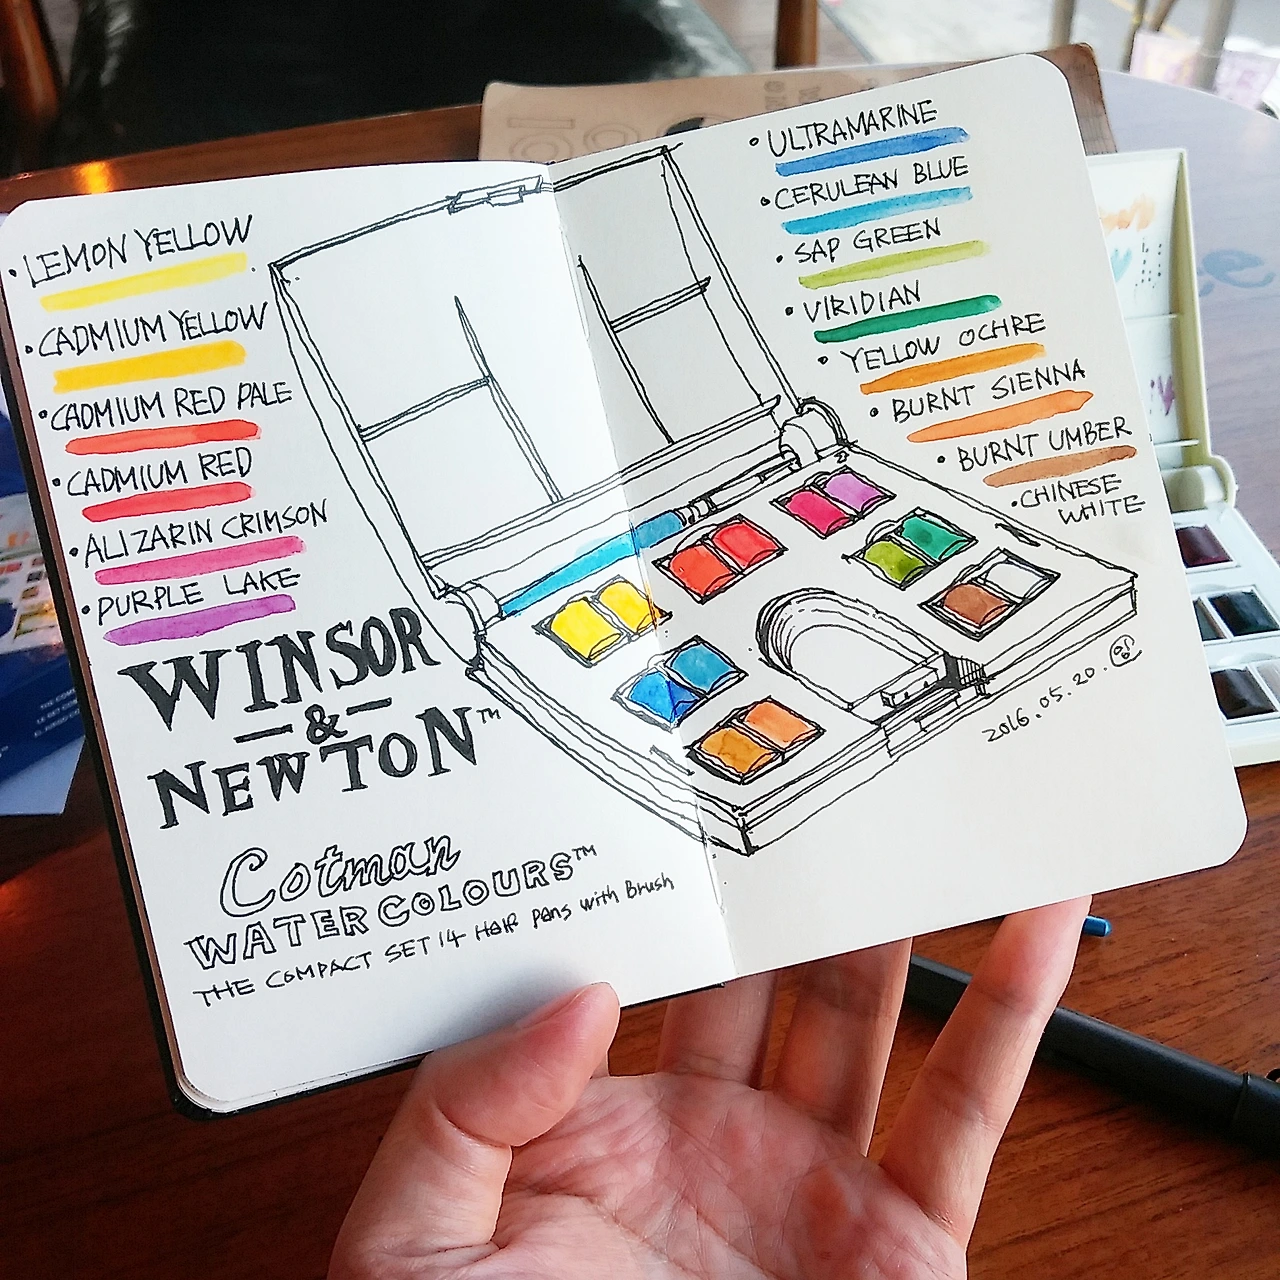 • LEMON YELLOW
• CADMIUM YELLOW
• CADMIUM RED PALE
• CADMIUM RED
• ALIZARIN CRIMSON
• PURPLE LAKE
WINSOR
— & —
NEWTON™
Cotman
WATER COLOURS™
THE COMPACT SET 14 Half Pans with Brush
• ULTRAMARINE
• CERULEAN BLUE
• SAP GREEN
• VIRIDIAN
• YELLOW OCHRE
• BURNT SIENNA
• BURNT UMBER
• CHINESE
WHITE
2016.05.20.